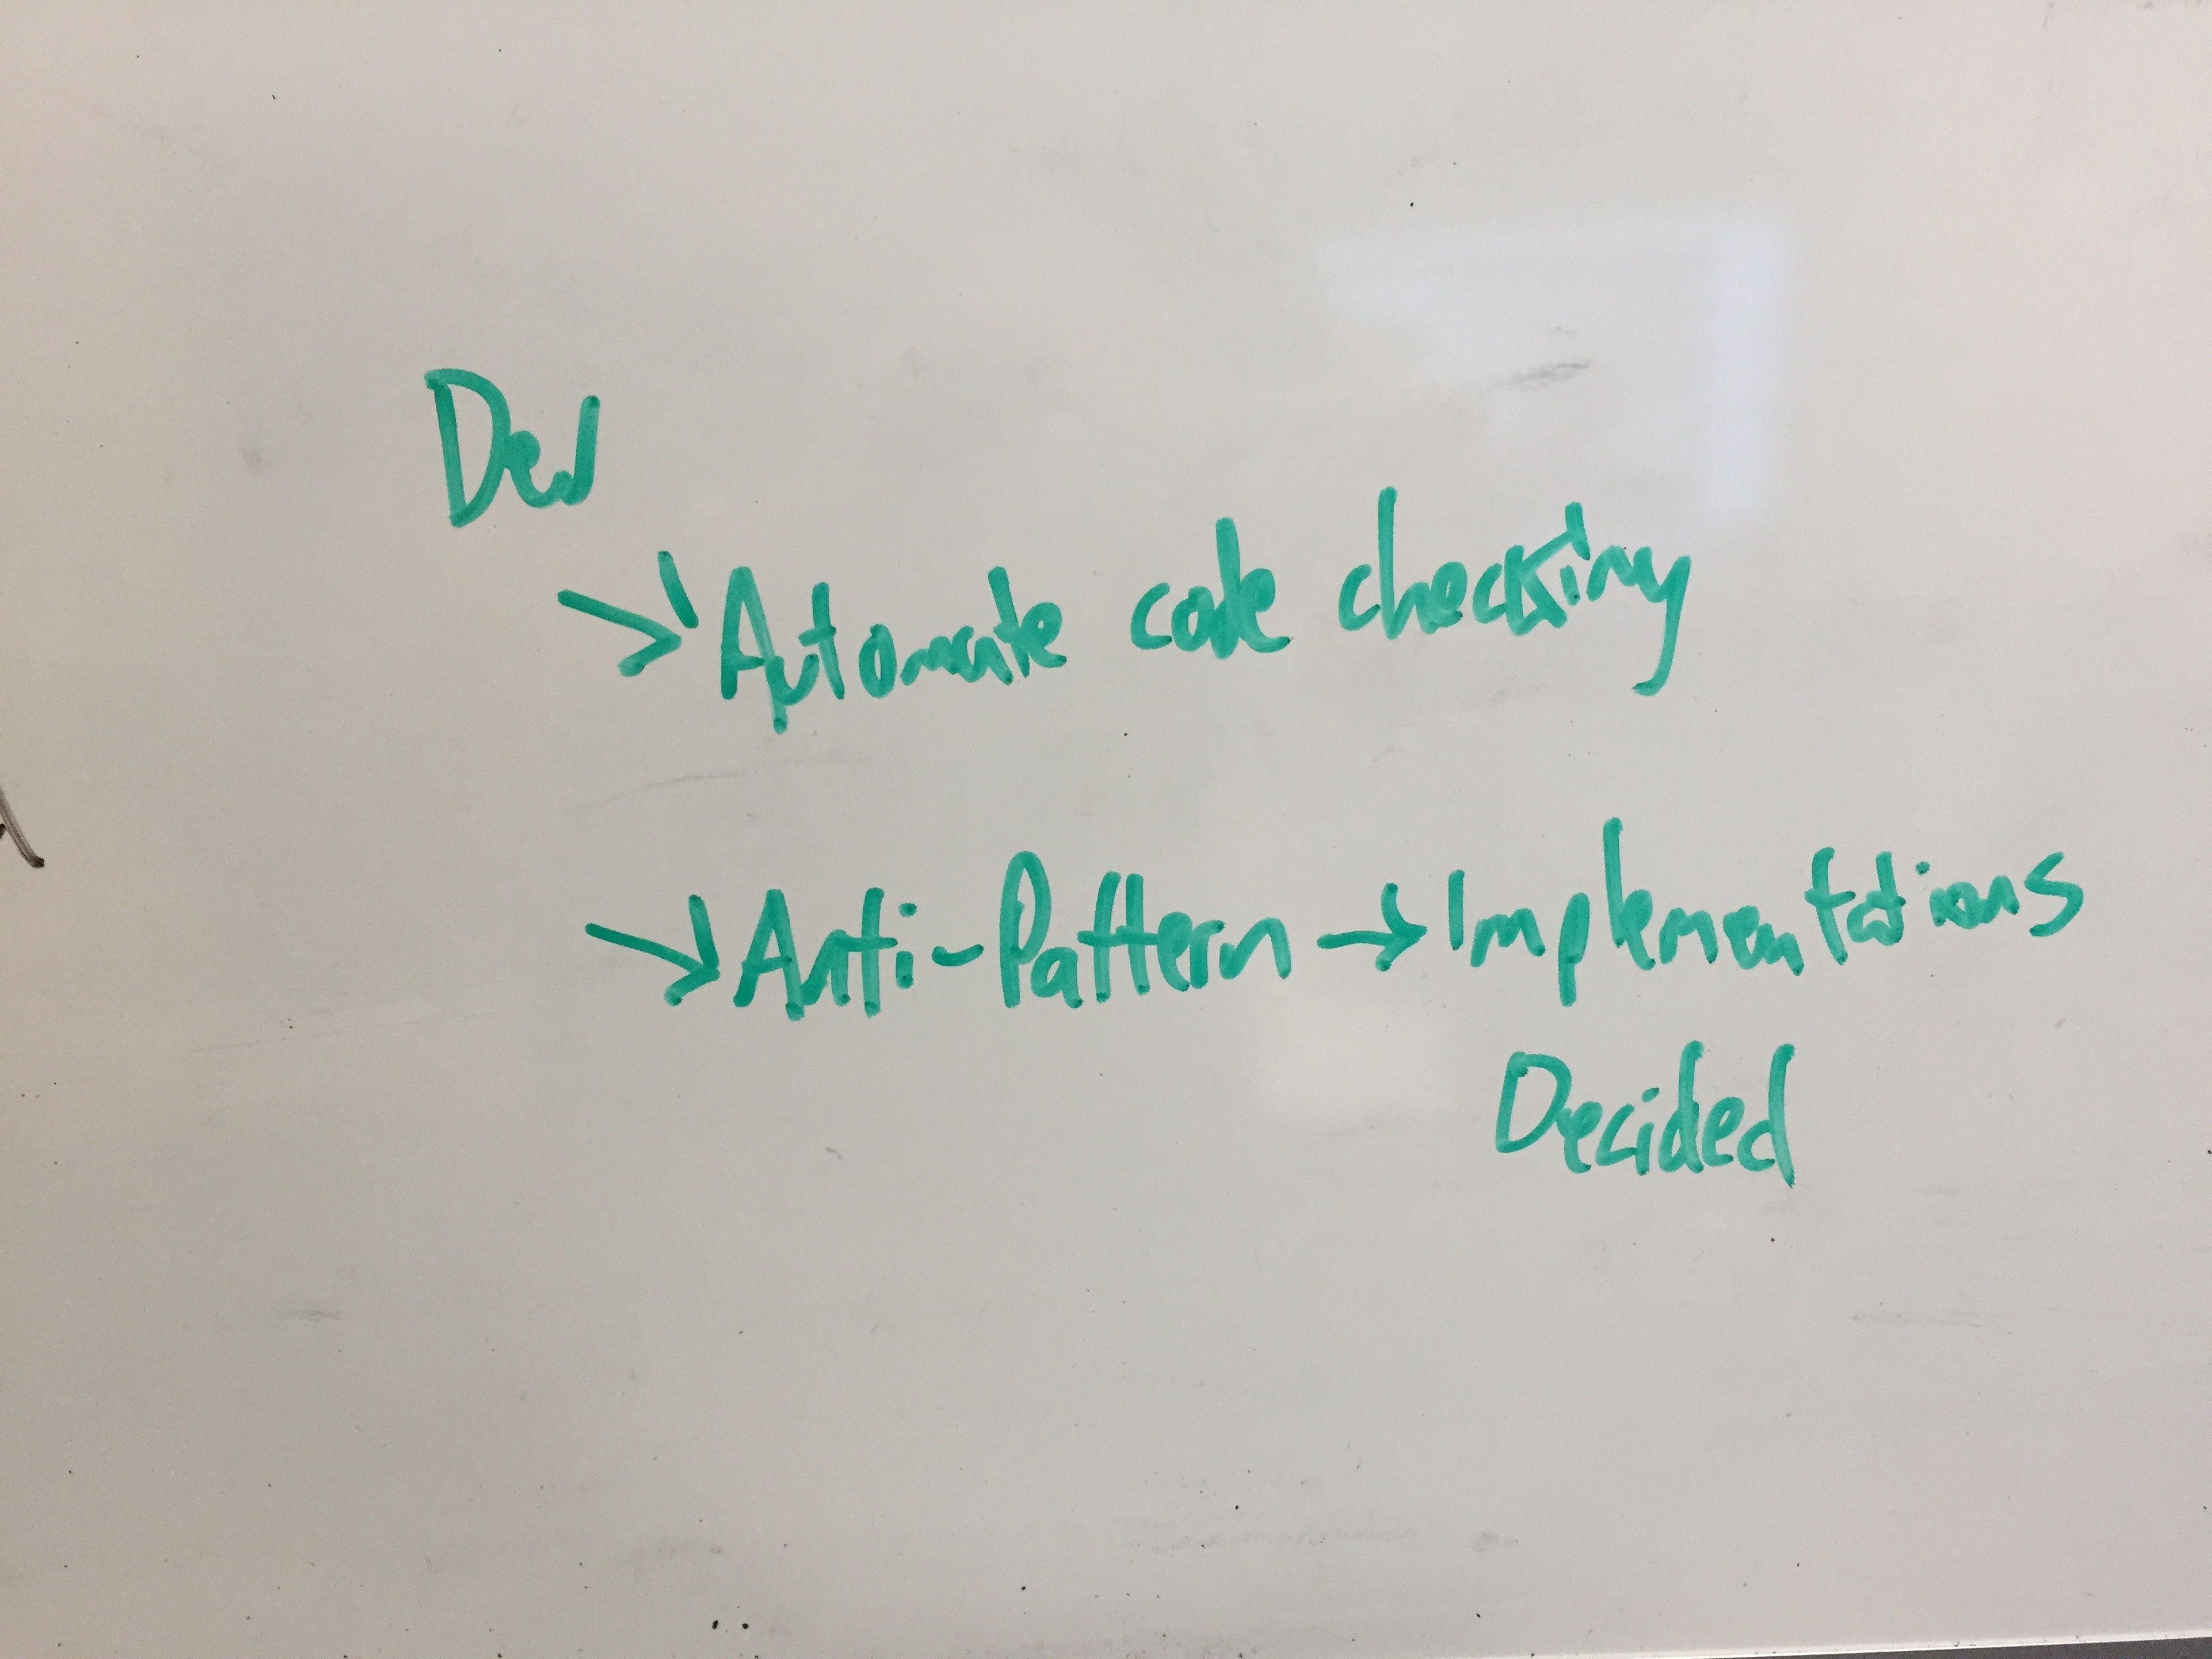 Dev
→ Automate code checking
→ Anti-Pattern → Implementations
Decided